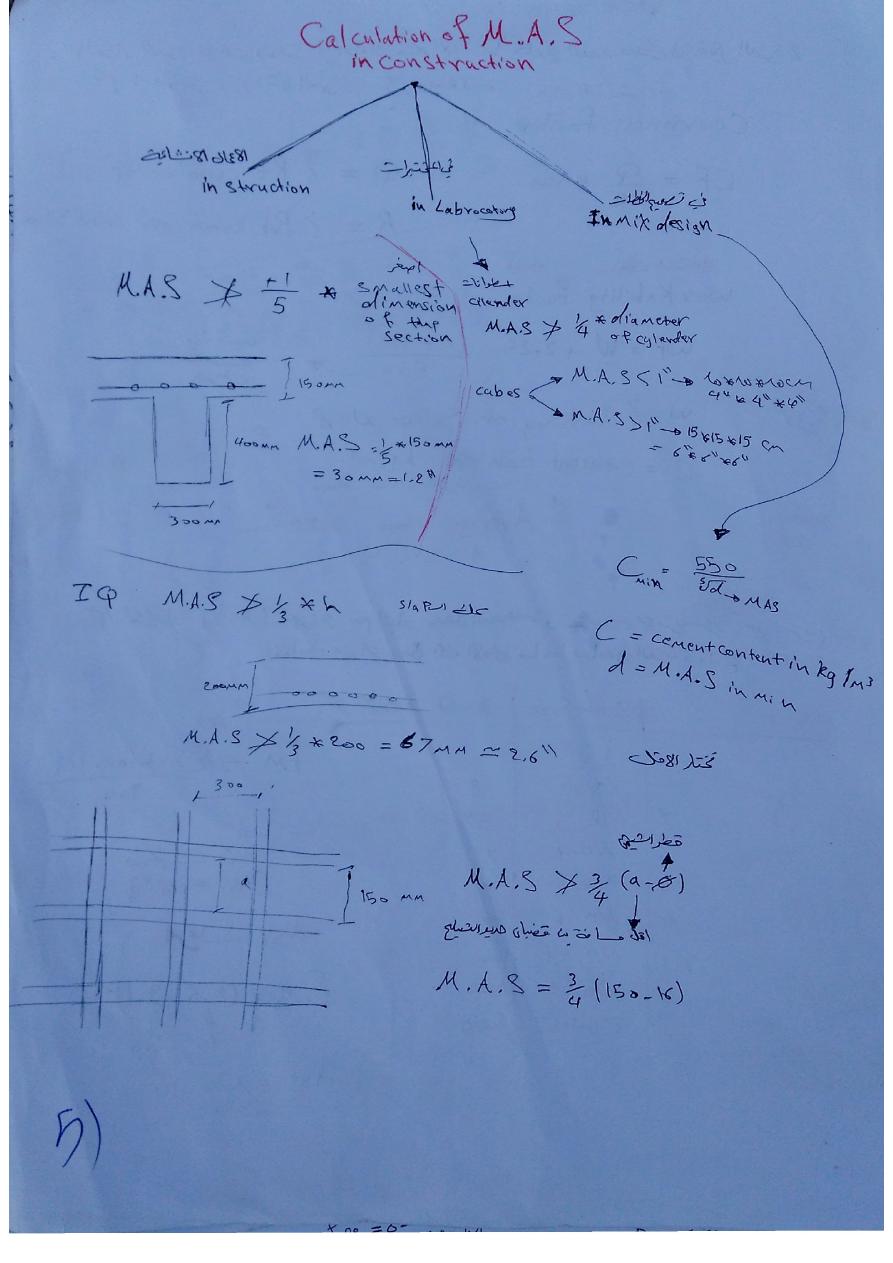 Calculation of M.A.S
in construction
الاعمال الانشائية
in struction
في المختبرات
in Labrocatory
في تصميم الخلطات
In Mix design
M.A.S ≯ 1/5 * smallest
dimension
of the
section
اصغر
cylender
M.A.S ≯ 1/4 * diameter
of cylender
cubes
M.A.S < 1" → 10*10*10 cm
4" * 4" * 4"
M.A.S > 1" → 15*15*15 cm
= 6" * 6" * 6"
150mm
400mm
300mm
M.A.S = 1/5 * 150mm
= 30mm = 1.2"
C min = 550 / ⁵√d → MAS
C = cement content in kg/m³
d = M.A.S in min
IQ M.A.S ≯ 1/3 * h
200mm
M.A.S ≯ 1/3 * 200 = 67mm ≃ 2.6"
نختار الاقل
300
a
150 mm
قطر الشيش
M.A.S ≯ 3/4 (a-Ø)
اقل مسافة بين قضبان حديد التسليح
M.A.S = 3/4 (150-16)
5)